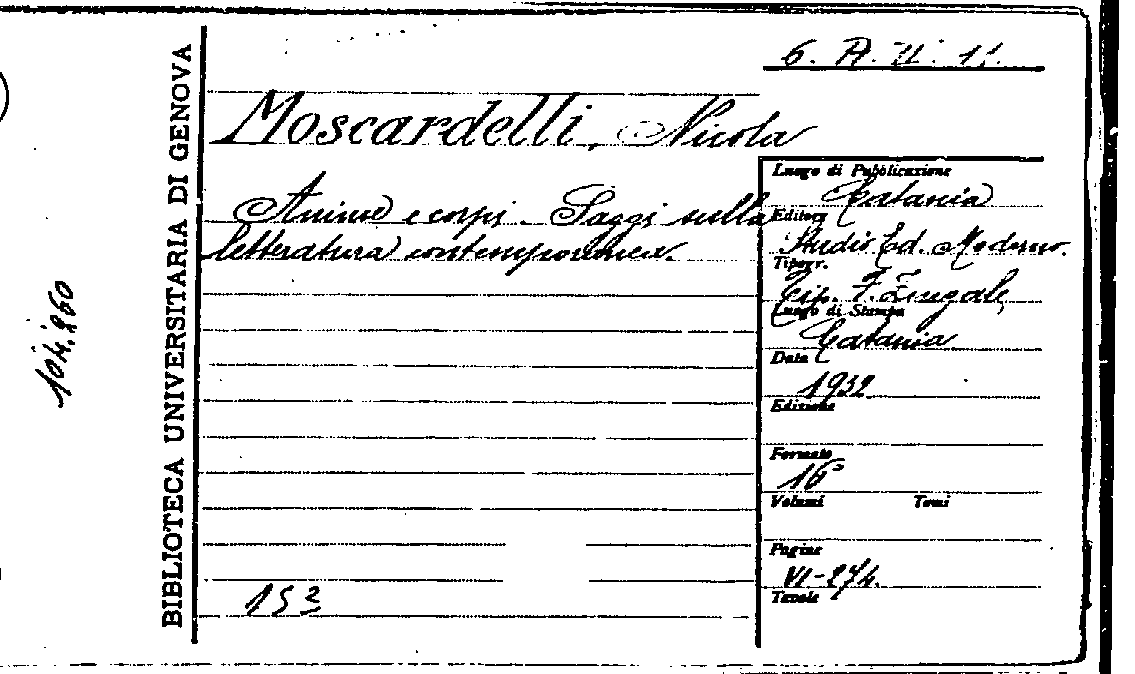 6. A. II. 11.
BIBLIOTECA UNIVERSITARIA DI GENOVA
104.260
Moscardelli, Nicola
Anime e corpi - Saggi sulla
letteratura contemporanea.
15 2
Luogo di Pubblicazione
Catania
Editore
Studio Ed. Moderno.
Tipogr.
Tip. F. Zingale,
Luogo di Stampa
Catania
Data
1932
Edizione
Formato
16°
Volumi Tomi
Pagine
VI-274.
Tavole